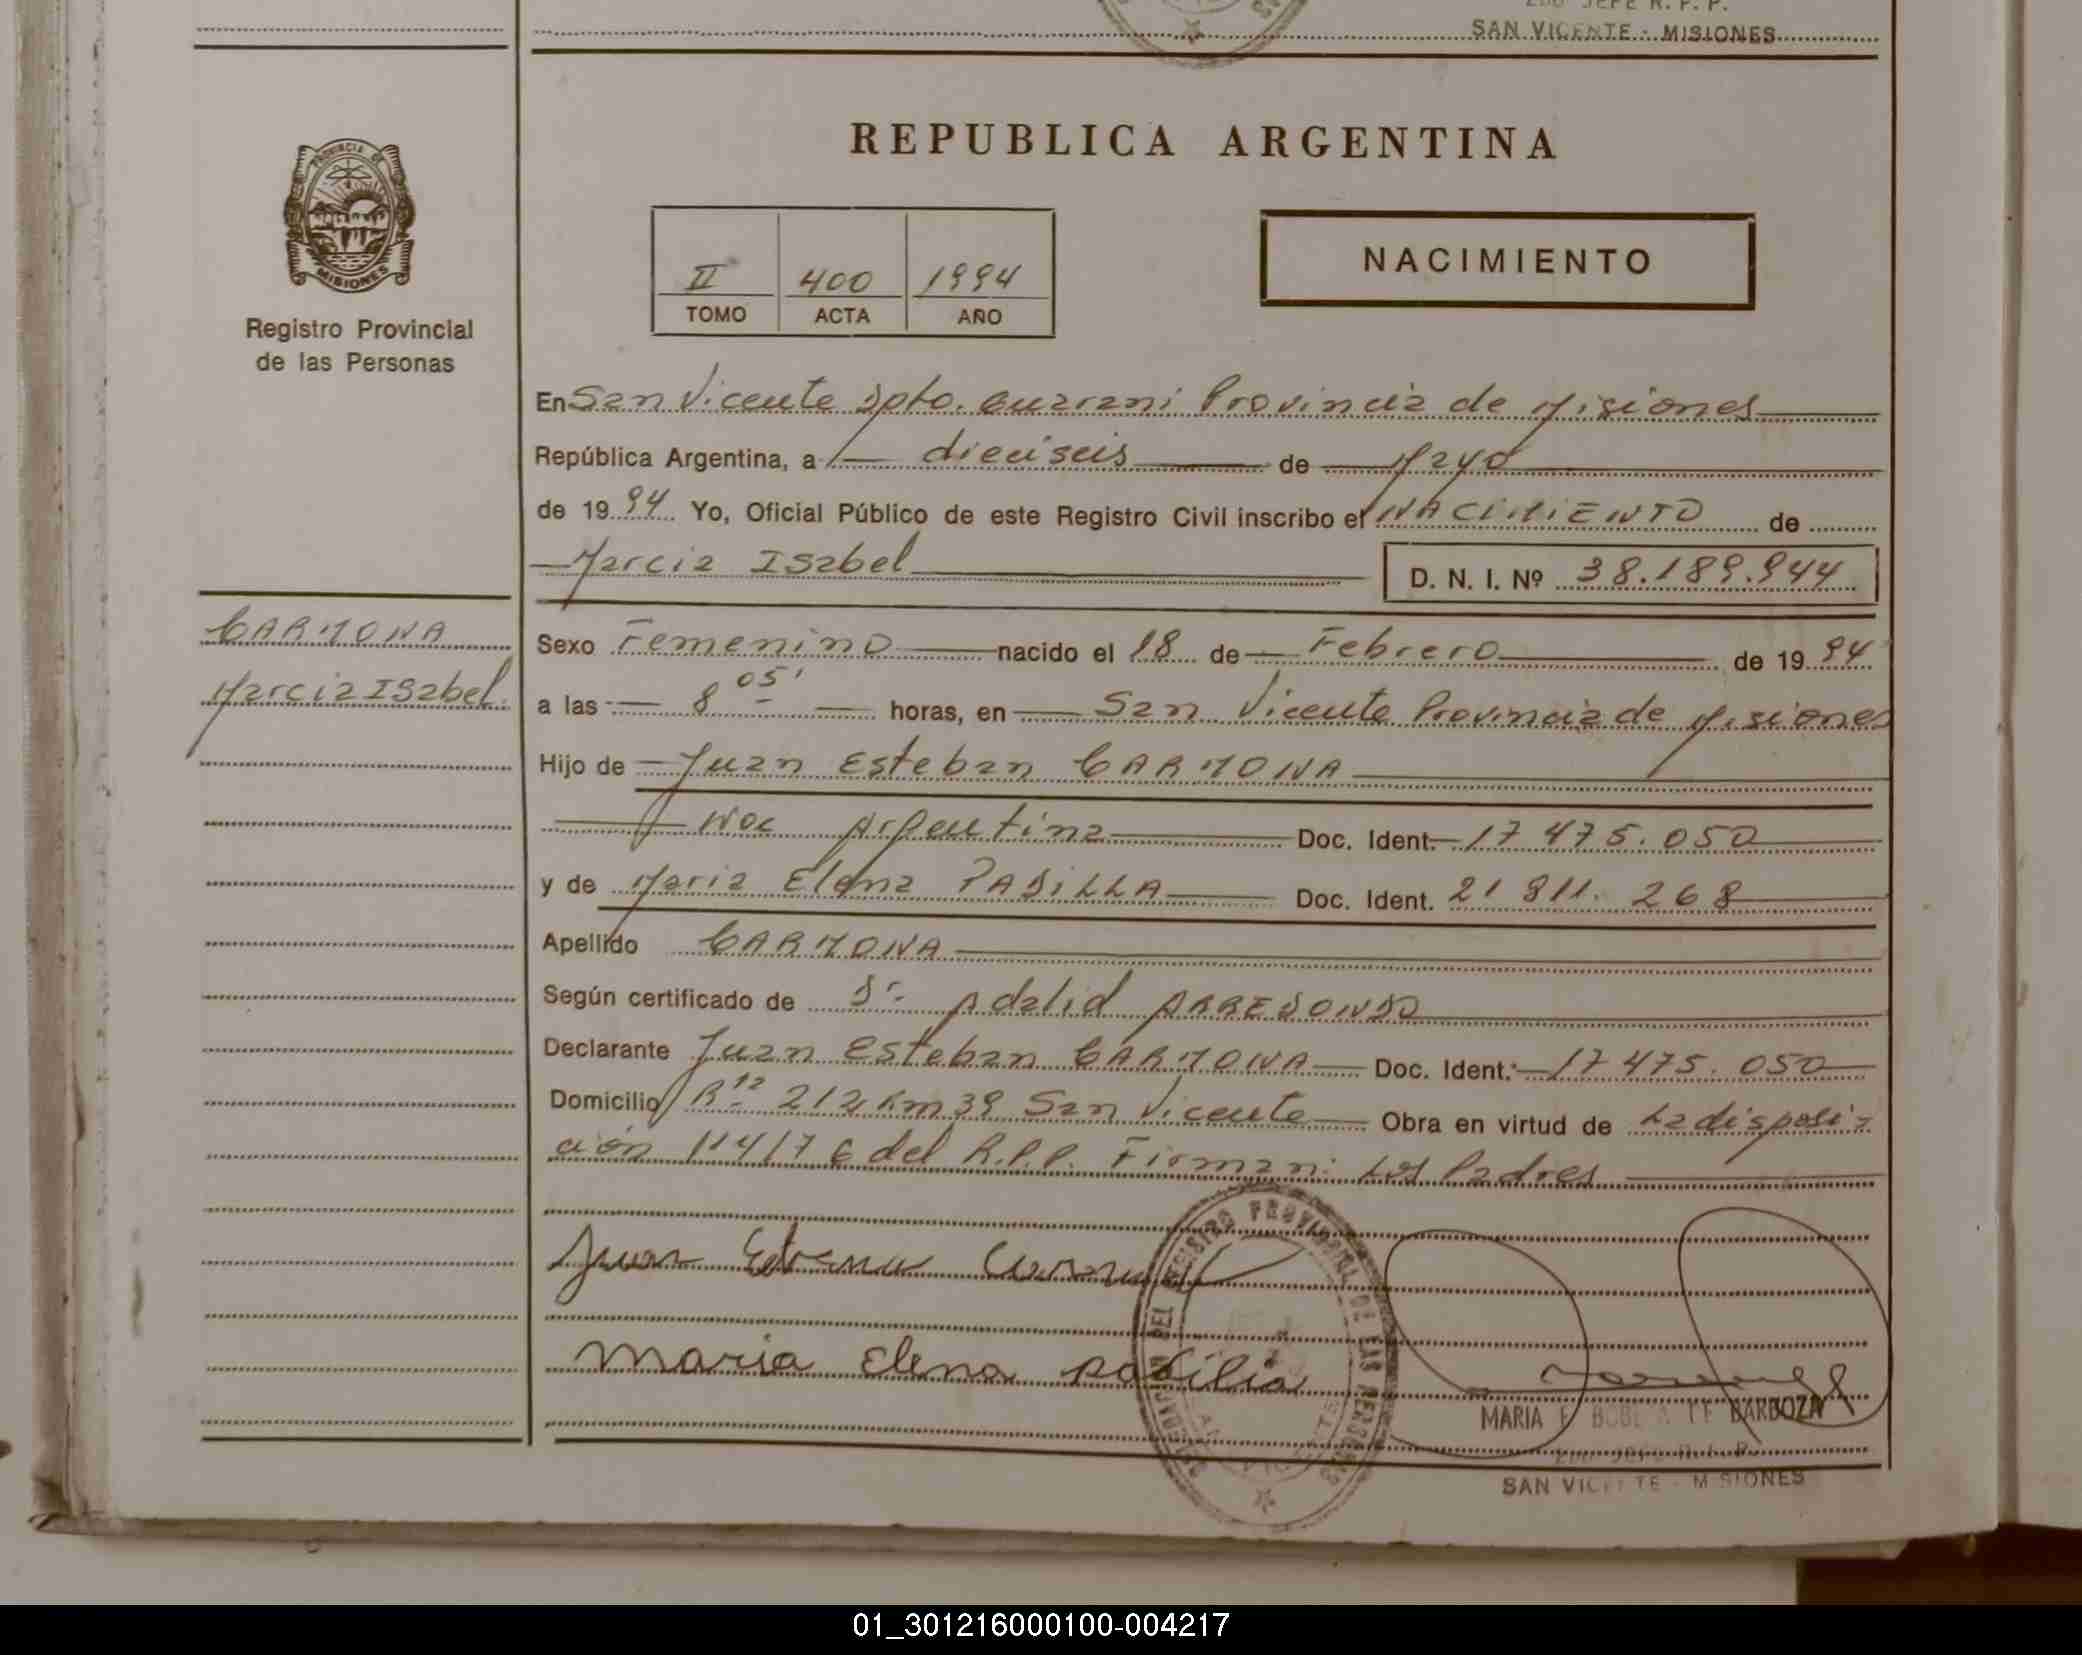 SAN VICENTE - MISIONES
REPUBLICA ARGENTINA
PROVINCIA DE
MISIONES
Registro Provincial
de las Personas
II 400 1994
TOMO ACTA AÑO
NACIMIENTO
En San Vicente Dpto. Guarani Provincia de Misiones
República Argentina, a dieciseis de Mayo
de 1994 Yo, Oficial Público de este Registro Civil inscribo el NACIMIENTO de
Marcia Isabel D. N. I. Nº 38.189.944
CARMONA
Marcia Isabel.
Sexo Femenino nacido el 18 de Febrero de 1994
a las 8 05' horas, en San Vicente Provincia de Misiones
Hijo de Juan Esteban CARMONA
Nac Argentina Doc. Ident. 17 475.050
y de Maria Elena PADILLA Doc. Ident. 21 811. 268
Apellido CARMONA
Según certificado de Dr. Adalid ARREDONDO
Declarante Juan Esteban CARMONA Doc. Ident. 17 475. 050
Domicilio R 212 Km 39 San Vicente Obra en virtud de La disposi-
ción 114/76 del R.P.P. Firman: Los Padres
Juan
Maria Elena Padilia
REGISTRO PROVINCIAL DE LAS PERSONAS
MARIA E DE BARBOZA
SAN VICENTE - MISIONES
01_301216000100-004217